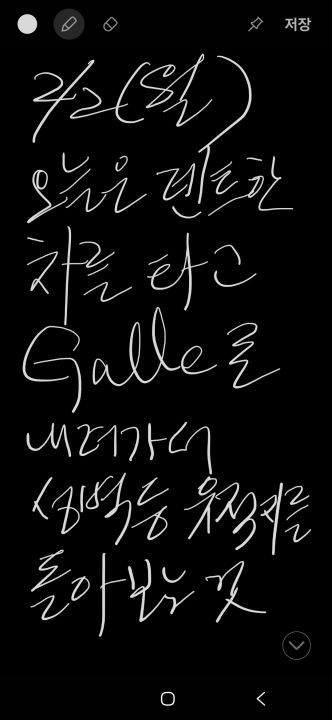 저장
2/2(월)
오늘은 렌트한
차를 타고
Galle로
내려가서
성벽등 유적지를
돌아보는 것